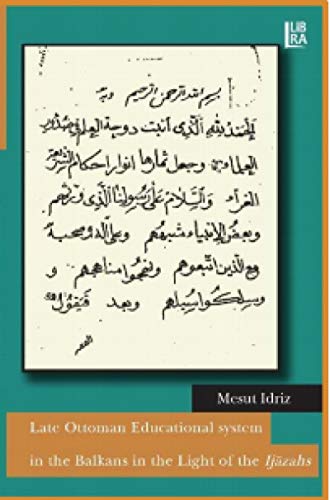 LiB
RA
بسم الله الرحمن الرحيم وبه
الحمد لله الذي انبت دوحة العلم في صدور
العلماء وجعل ثمارها انوار احكام الشريعة
الغراء والسلام على رسولنا الذي ورثهم
وبعض الانبياء شبههم وعلى آله وصحبه
مع الذين اتبعوهم مناهجهم و
وسلكوا سبيلهم وبعد فيقول
Mesut Idriz
Late Ottoman Educational system
in the Balkans in the Light of the Ijāzahs